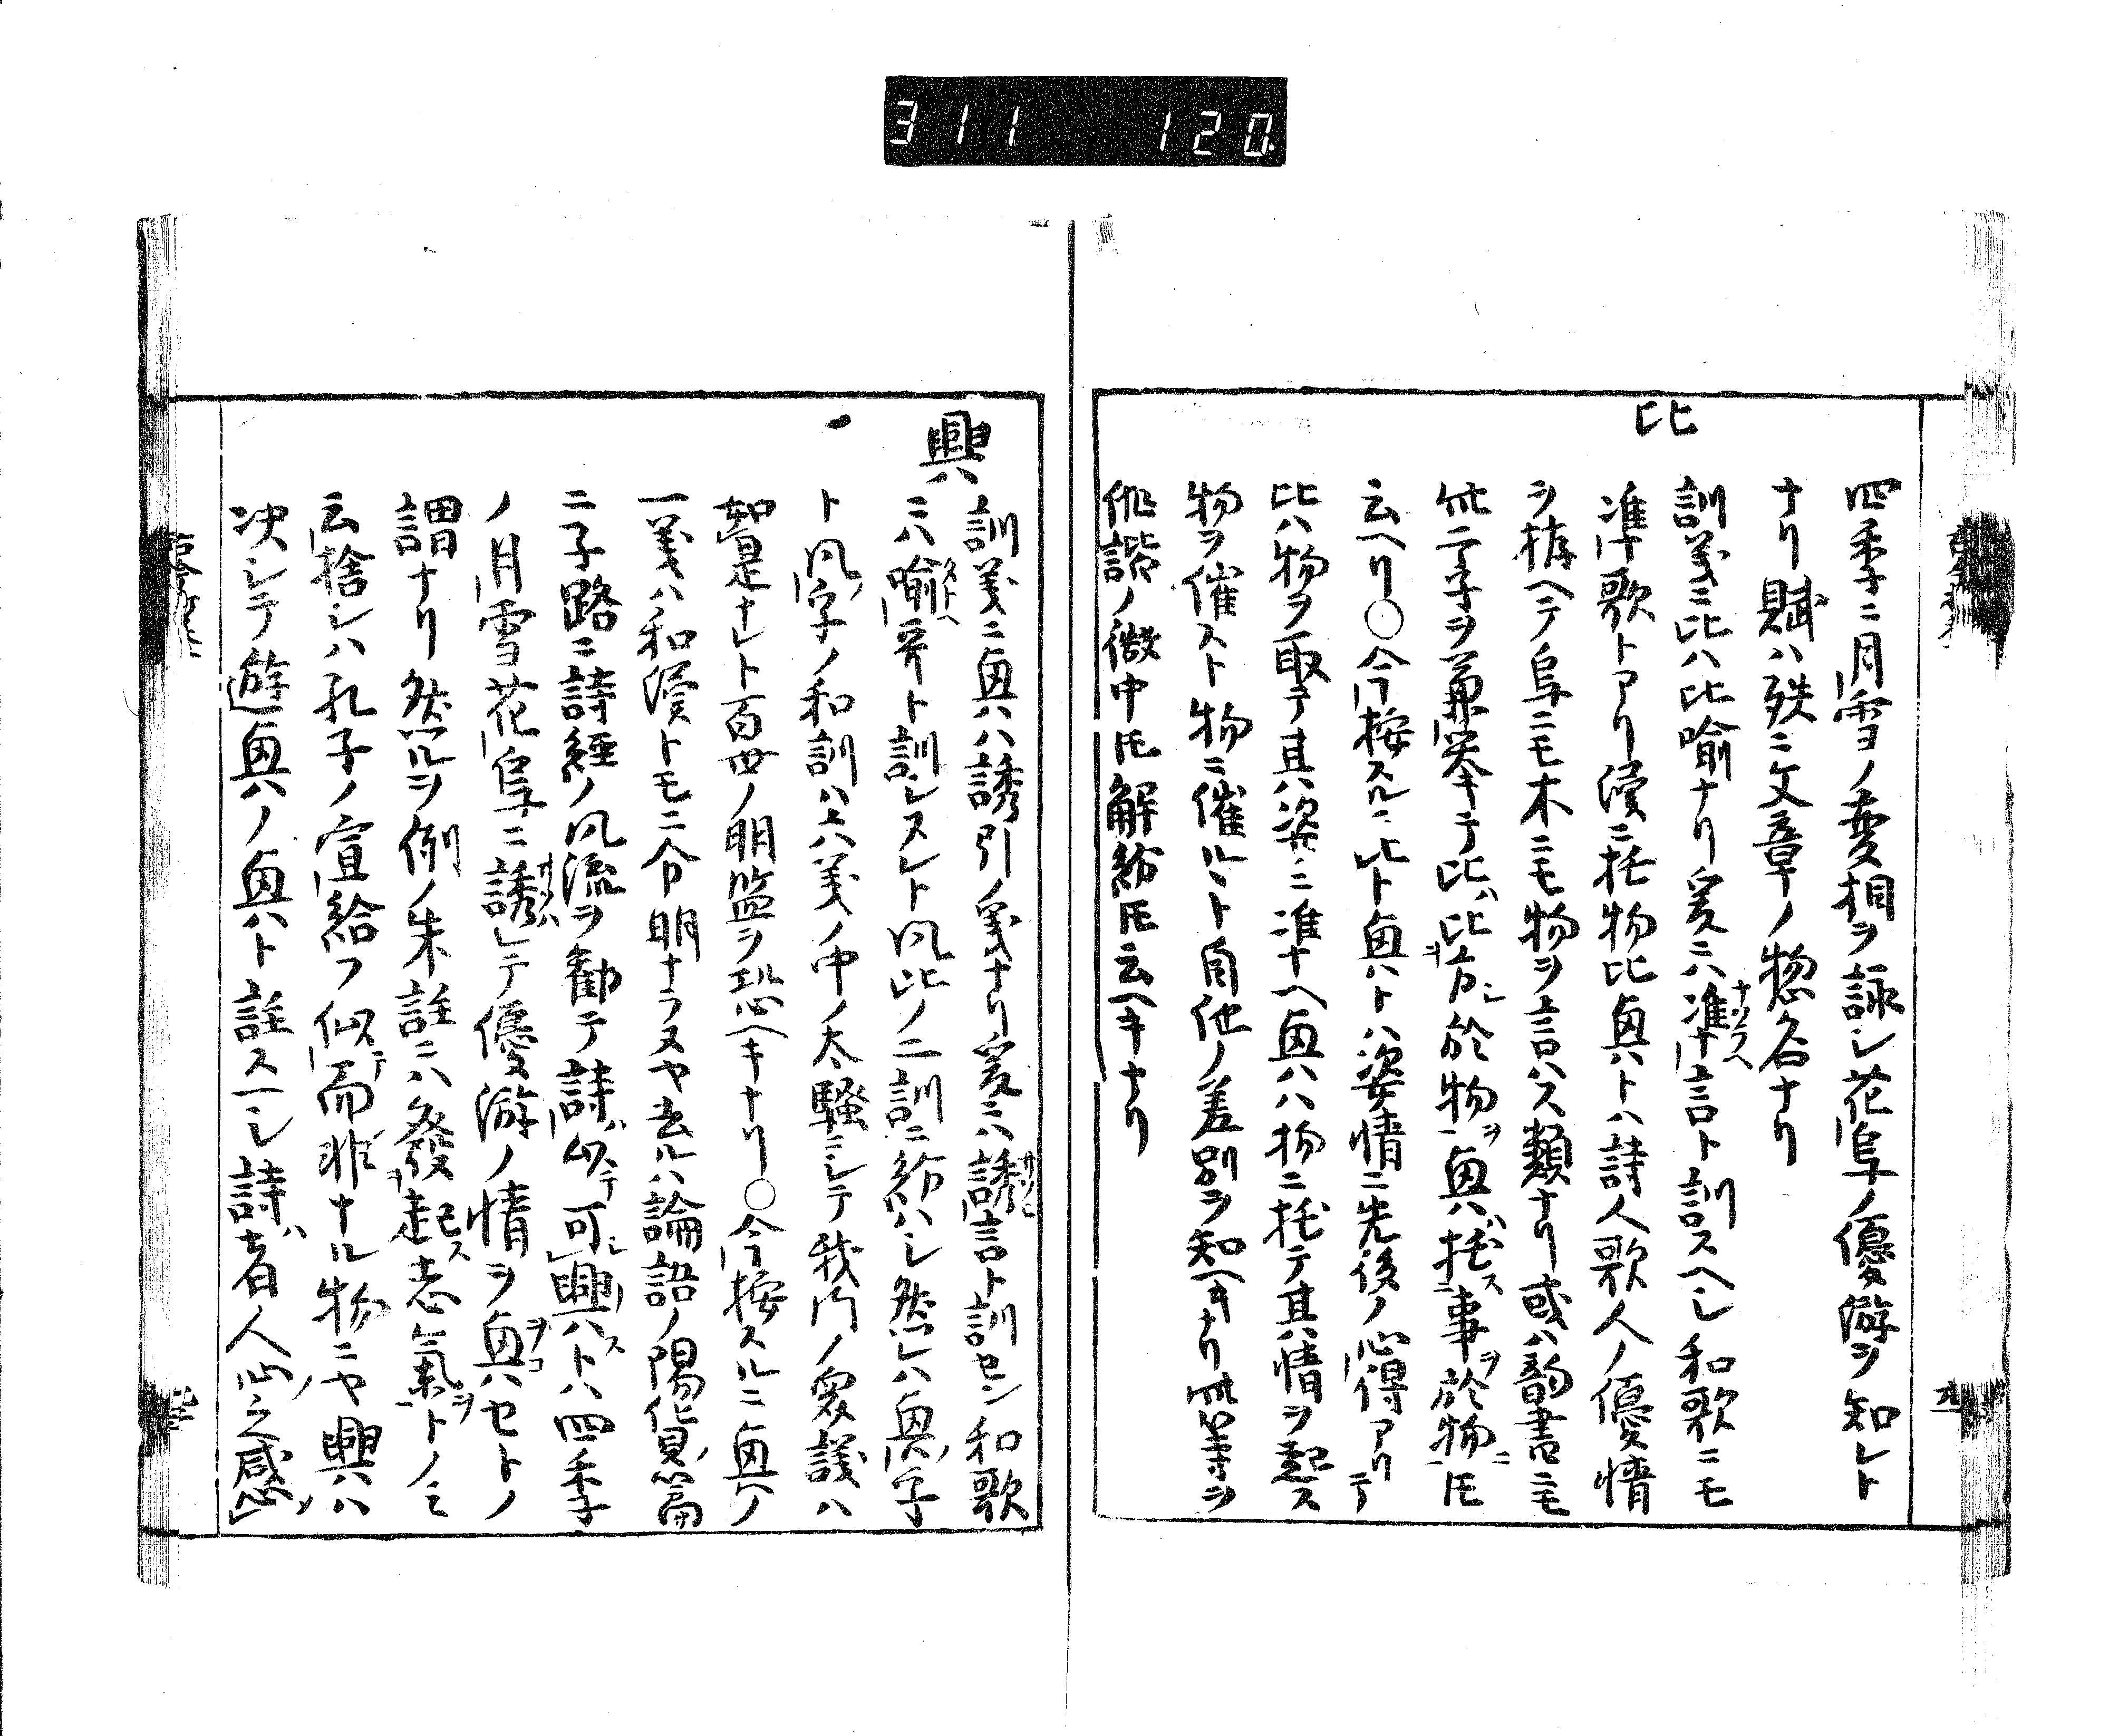 311 120
四季ニ月雪ノ変相ヲ詠シ花鳥ノ優游ヲ知レト
ナリ賦ハ殊ニ文章ノ惣名ナリ
比
訓義ニ比ハ比喩ナリ爰ニハ准言ト訓スヘシ和歌ニモ
准歌トアリ漢ニ托物比興トハ詩人歌人ノ優情
ヲ構ヘテ鳥ニモ木ニモ物ヲ言ハス類ナリ或ハ韵書ニモ
此二字ヲ兼挙キテ比ハ比方シ於物ヲ興ハ托ス事ヲ於物ニ𪜈
云ヘリ〇今按スルニ比ト興トハ姿情ニ先後ノ心得アリテ
比ハ物ヲ取テ其姿ニ准ヘ興ハ物ニ托テ其情ヲ起ス
物ヲ催スト物ニ催ルヽト自他ノ差別ヲ知ヘキナリ此等ヲ
俳諧ノ微中𪜈解紛𪜈云ヘキナリ
興
訓義ニ興ハ誘引ノ義ナリ爰ニハ誘言ト訓セン和歌
ニハ喩哥ト訓シスレト風比ノ二訓ニ紛ハシ然レハ興ノ字
ト風ノ字ノ和訓ハ六義ノ中ノ大騒ニシテ我門ノ衆議ハ
如是ナレト百世ノ明鑒ヲ恐ヘキナリ〇今按スルニ興ノ
一義ハ和漢トモニ分明ナラヌヤ去ルハ論語ノ陽貨篇
ニ子路ニ詩経ノ風流ヲ勧テ詩ハ以テ可シ興ストハ四季
ノ月雪花鳥ニ誘レテ優游ノ情ヲ興セトノ
謂ナリ然ルヲ例ノ朱註ニハ発起ス志氣ヲトノミ
云捨シハ孔子ノ宣給フ似テ而非ナル物ニヤ興ハ
決シテ遊興ノ興ト註スヘシ詩ハ者人心ノ之感